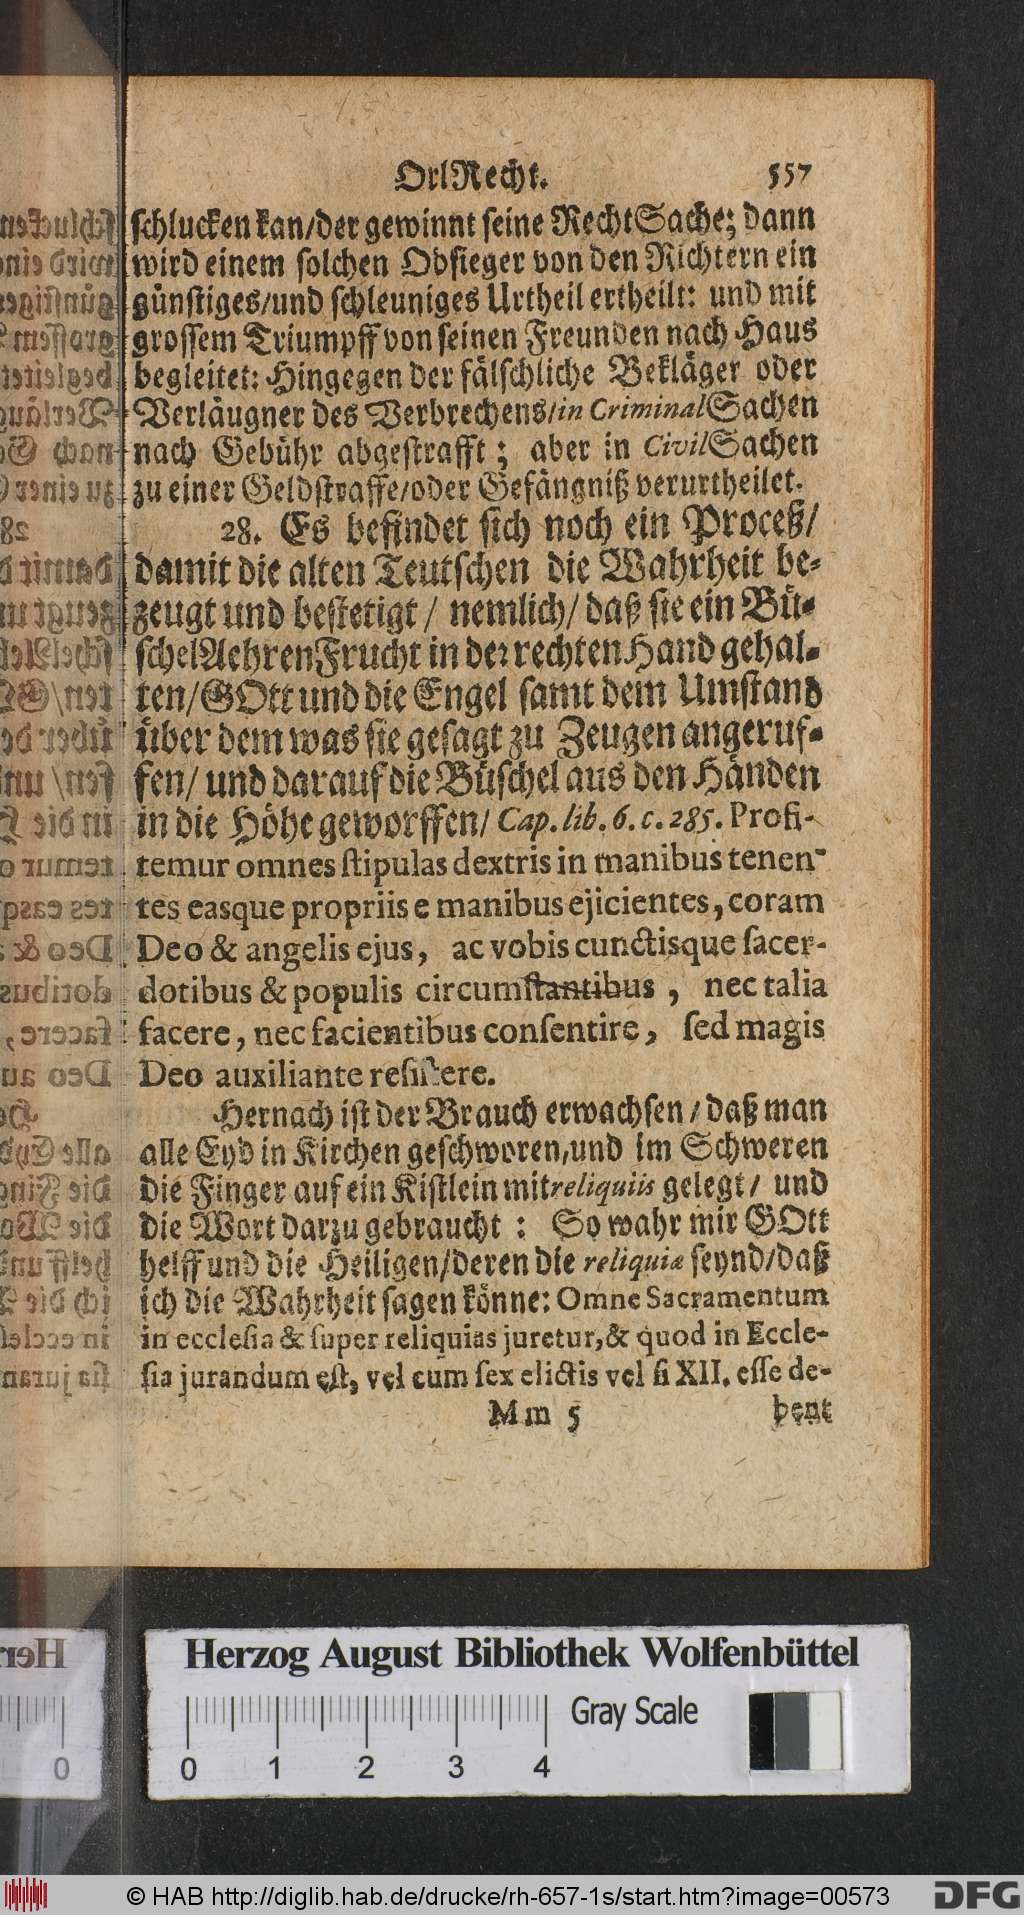 OrlRecht. 557
schlucken kan/der gewinnt seine RechtSache; dann
wird einem solchen Obsieger von den Richtern ein
günstiges/und schleuniges Urtheil ertheilt: und mit
grossem Triumpff von seinen Freunden nach Haus
begleitet: Hingegen der fälschliche Bekläger oder
Verläugner des Verbrechens/in CriminalSachen
nach Gebühr abgestrafft; aber in CivilSachen
zu einer Geldstraffe/oder Gefängniß verurtheilet.
28. Es befindet sich noch ein Proceß/
damit die alten Teutschen die Wahrheit be-
zeugt und bestetigt/ nemlich/ daß sie ein Bü-
schelAehrenFrucht in der rechten Hand gehal-
ten/GOtt und die Engel samt dem Umstand
über dem was sie gesagt zu Zeugen angeruf-
fen/ und darauf die Büschel aus den Händen
in die Höhe geworffen/ Cap. lib. 6. c. 285. Profi-
temur omnes ſtipulas dextris in manibus tenen-
tes easque propriis e manibus ejicientes, coram
Deo & angelis ejus, ac vobis cunctisque ſacer-
dotibus & populis circumſtantibus, nec talia
facere, nec facientibus conſentire, ſed magis
Deo auxiliante reſiſtere.
Hernach ist der Brauch erwachsen/daß man
alle Eyd in Kirchen geschworen/und im Schweren
die Finger auf ein Kistlein mit reliquiis gelegt/ und
die Wort darzu gebraucht: So wahr mir GOtt
helff und die Heiligen/deren die reliquiæ seynd/daß
ich die Wahrheit sagen könne: Omne Sacramentum
in eccleſia & ſuper reliquias juretur, & quod in Eccle-
ſia jurandum eſt, vel cum ſex elictis vel ſi XII. eſſe de-
Mm 5 bent
Herzog August Bibliothek Wolfenbüttel
Gray Scale
0 1 2 3 4
© HAB http://diglib.hab.de/drucke/rh-657-1s/start.htm?image=00573
DFG